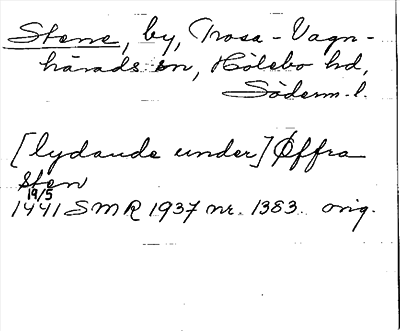 Stene, by, Trosa-Vagn-
härads sn, Hölebo hd,
Söderm. l.
[lydande under] Øffra
Sten
19/5
1441 SMR 1937 nr. 1383. orig.